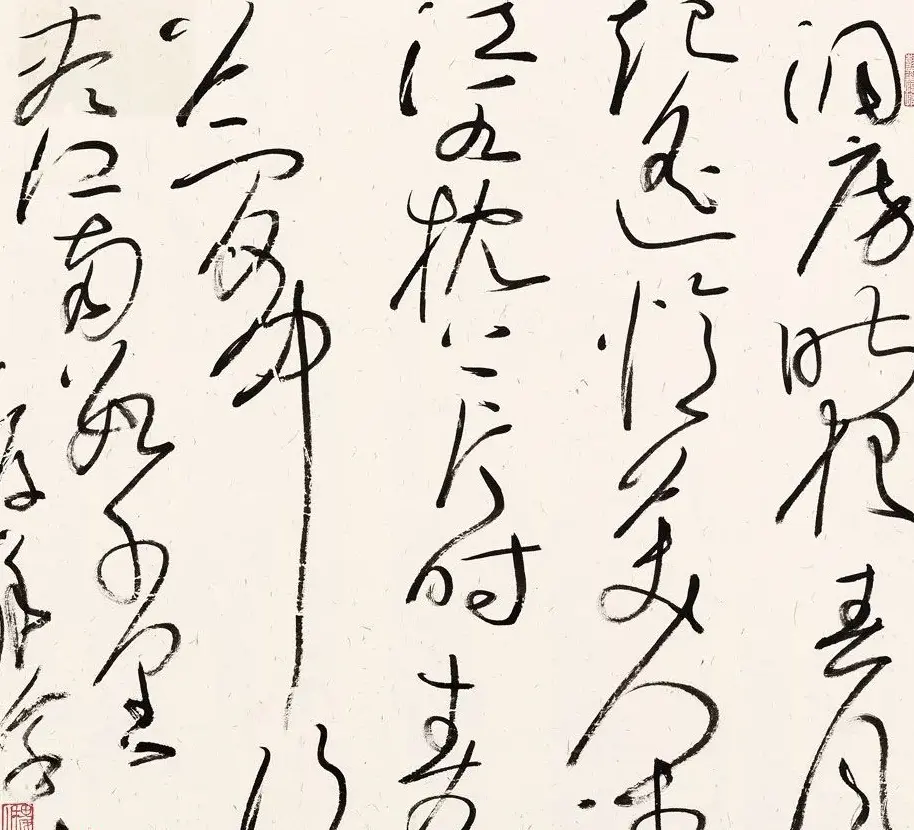 洞房昨夜春风
起遥忆美人湘
江水枕上片时春
梦中行
尽江南数千里